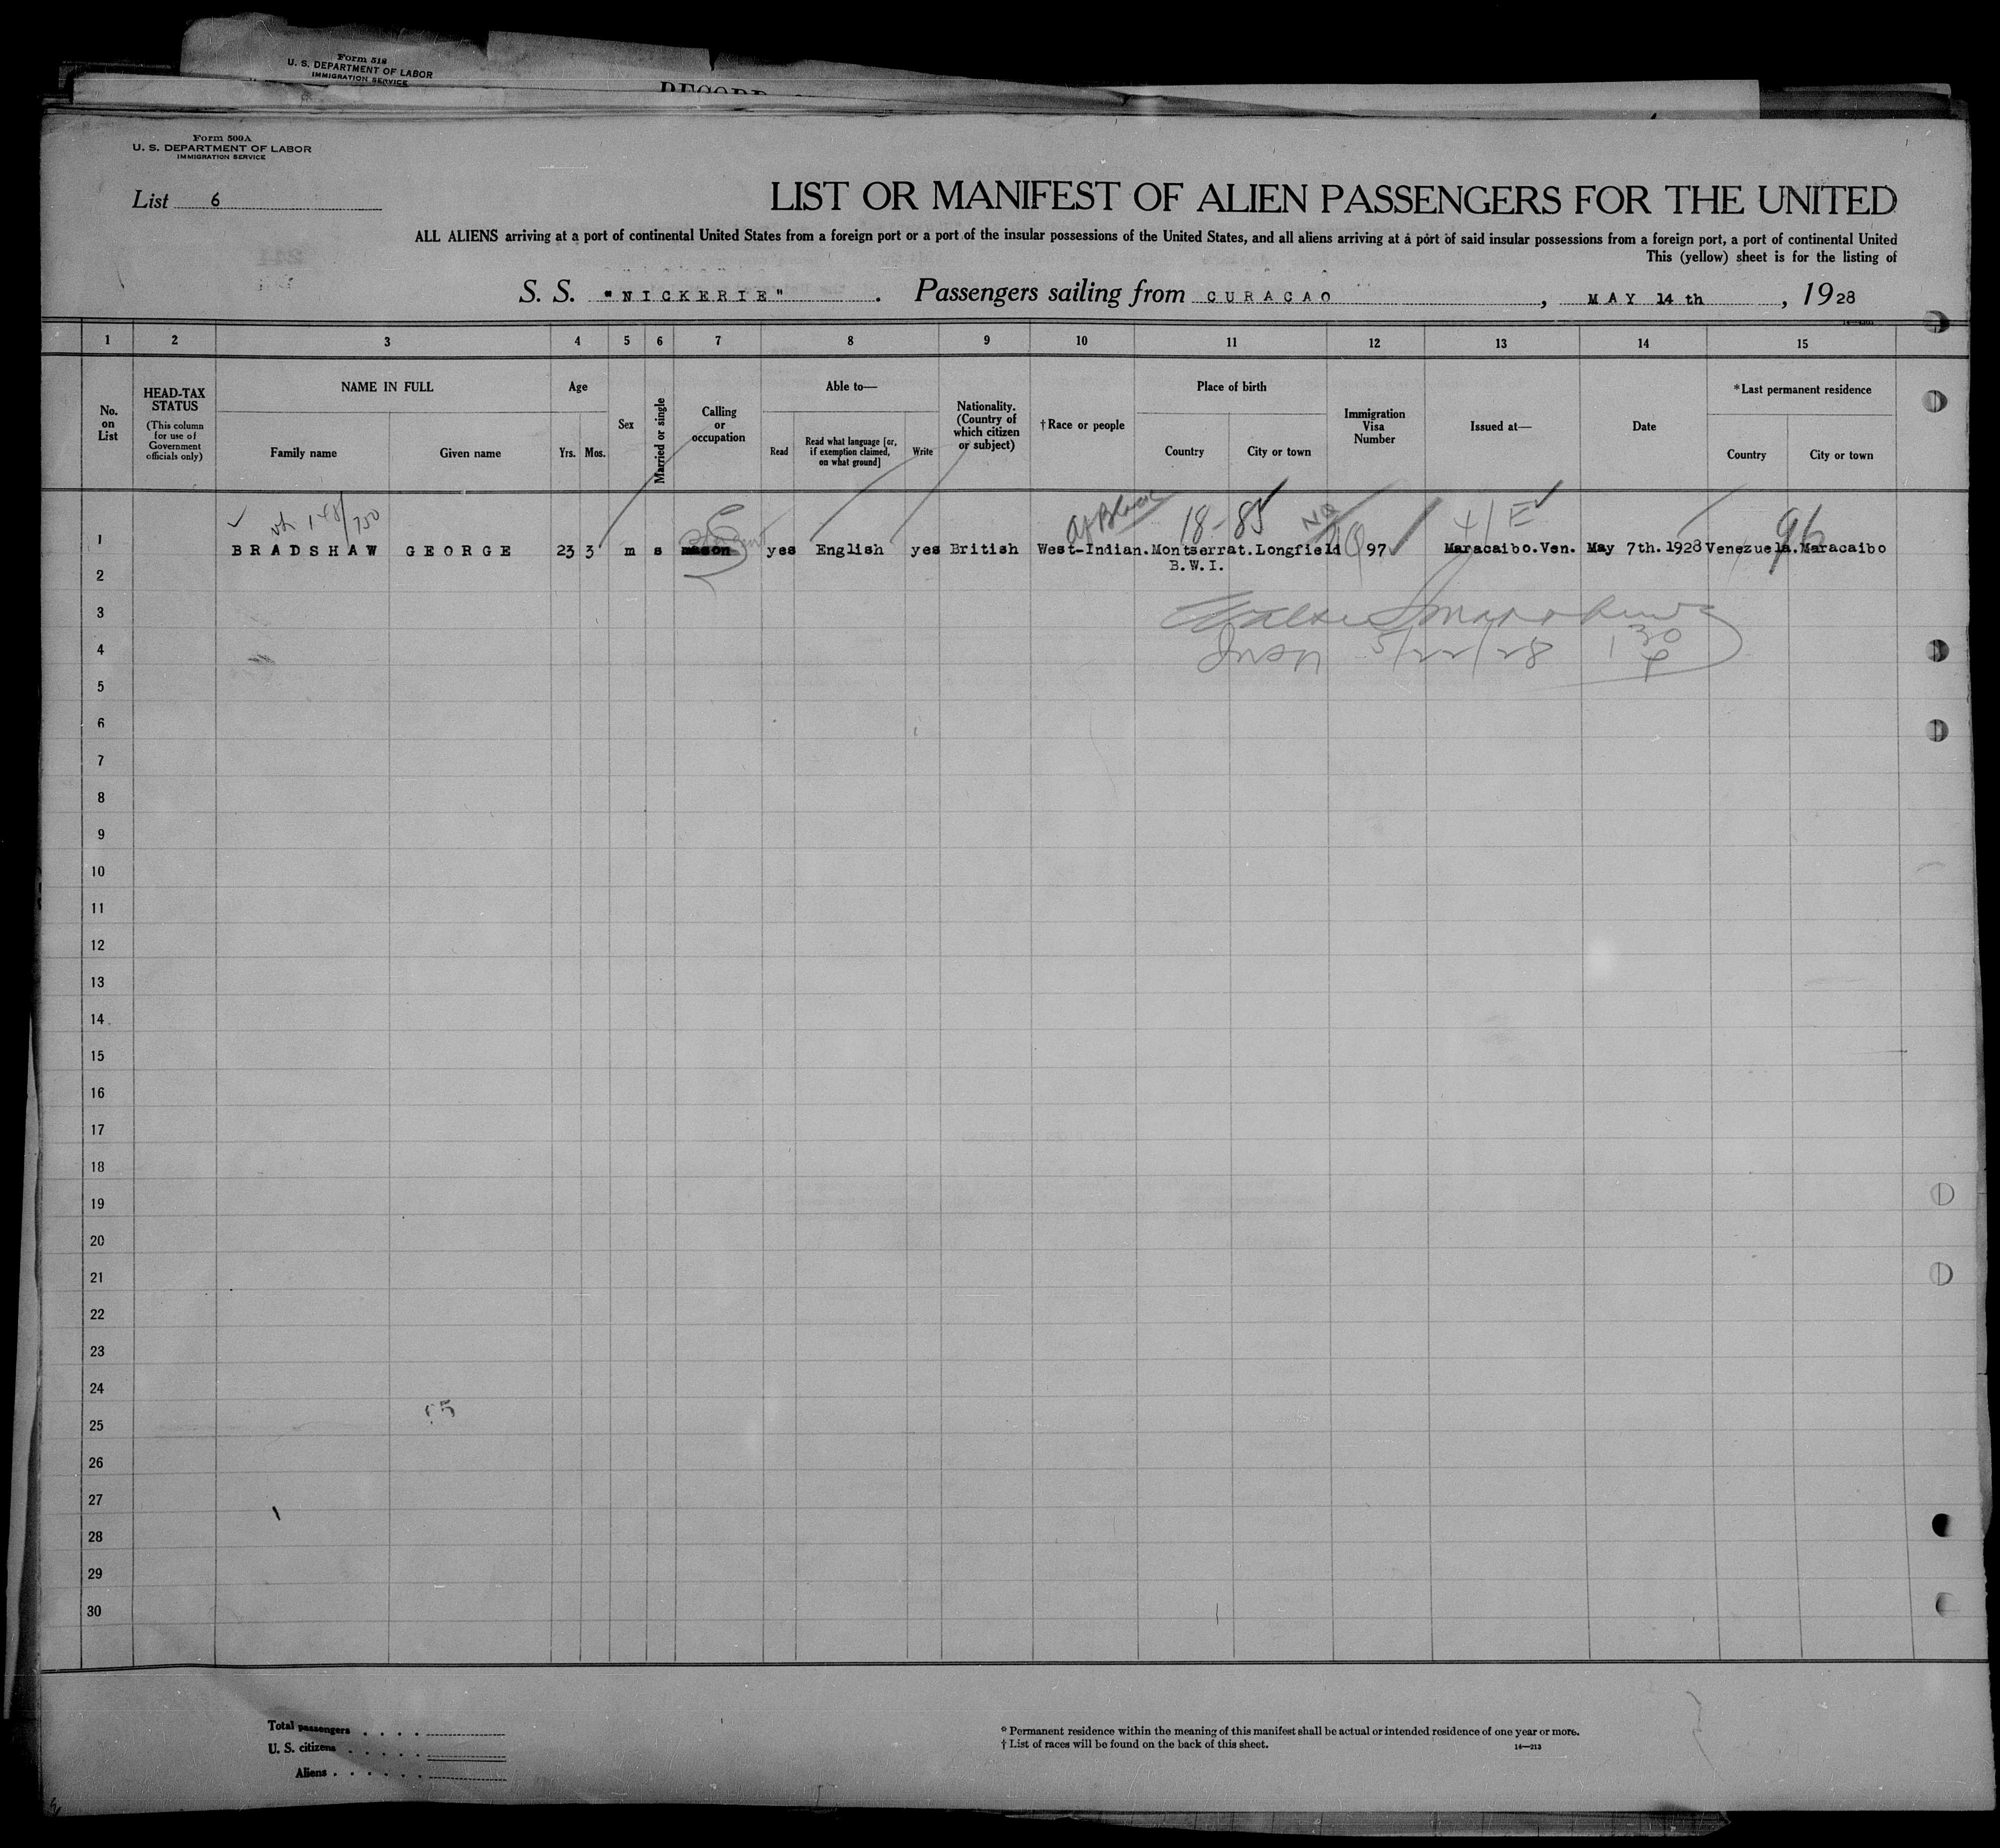 Form 518
U. S. DEPARTMENT OF LABOR
IMMIGRATION SERVICE
RECORD
Form 500A
U. S. DEPARTMENT OF LABOR
IMMIGRATION SERVICE
List 6
LIST OR MANIFEST OF ALIEN PASSENGERS FOR THE UNITED
ALL ALIENS arriving at a port of continental United States from a foreign port or a port of the insular possessions of the United States, and all aliens arriving at a port of said insular possessions from a foreign port, a port of continental United
This (yellow) sheet is for the listing of
S. S. "NICKERIE". Passengers sailing from CURACAO, MAY 14 th, 1928
1 2 3 4 5 6 7 8 9 10 11 12 13 14 15
No. on List
HEAD-TAX STATUS
(This column for use of Government officials only)
NAME IN FULL
Family name
Given name
Age
Yrs. Mos.
Sex
Married or single
Calling or occupation
Able to—
Read
Read what language [or, if exemption claimed, on what ground]
Write
Nationality. (Country of which citizen or subject)
†Race or people
Place of birth
Country
City or town
Immigration Visa Number
Issued at—
Date
*Last permanent residence
Country
City or town
148/750
Af Black
18-85
NQ
96
1 BRADSHAW GEORGE 23 3 m s mason yes English yes British West-Indian. Montserrat. Longfield 97 Maracaibo. Ven. May 7th. 1928 Venezuela. Maracaibo
B.W.I.
2
3
4
5/22/28 130
5
6
7
8
9
10
11
12
13
14
15
16
17
18
19
20
21
22
23
24
25
26
27
28
29
30
Total passengers
U. S. citizens
Aliens
* Permanent residence within the meaning of this manifest shall be actual or intended residence of one year or more.
† List of races will be found on the back of this sheet.
14—213